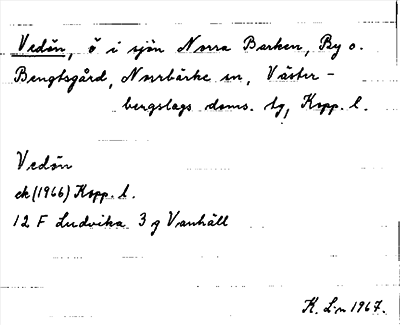 Vedön, ö i sjön Norra Barken, By o.
Bengtsgård, Norrbärke sn, Väster-
bergslags doms. tg, Kopp. l.
Vedön
ek (1966) Kopp. l.
12 F Ludvika 3 g Vanhäll
K. L:n 1967.